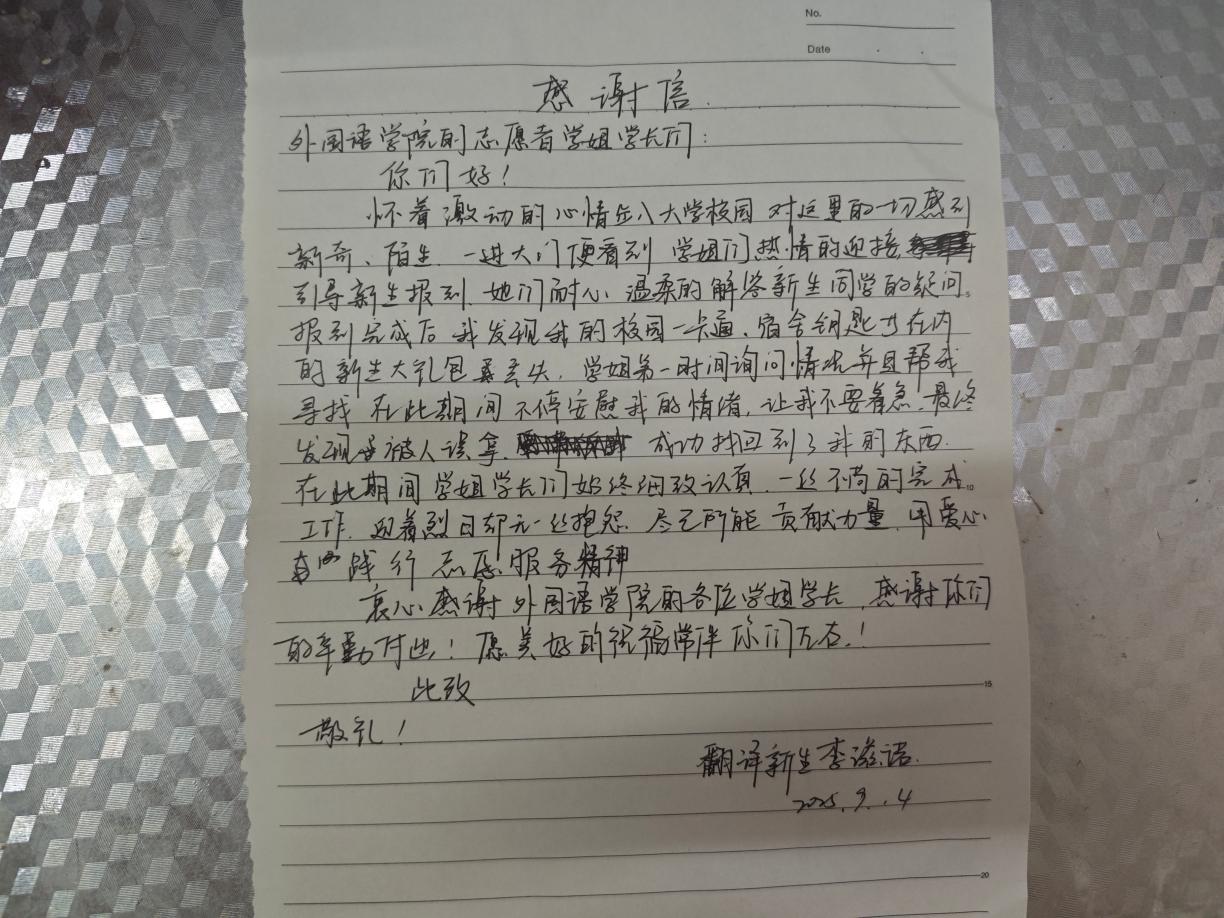 No.
Date
感谢信
外国语学院的志愿者学姐学长们:
你们好!
怀着激动的心情步入大学校园 对这里的一切感到
新奇、陌生. 一进大门便看到 学姐们热情的迎接,
引导新生报到. 她们耐心、温柔的解答新生同学的疑问.
5
报到完成后 我发现我的校园一卡通、宿舍钥匙
在内
的新生大礼包丢失. 学姐第一时间询问情况并且帮我
寻找 在此期间不停安慰我的情绪, 让我不要着急. 最终
发现是被人误拿, 成功找回到了我的东西.
在此期间学姐学长们始终细致认真, 一丝不苟的完成
10
工作. 迎着烈日却无一丝抱怨. 尽己所能 贡献力量, 用爱心
践行志愿服务精神
衷心感谢外国语学院的各位学姐学长, 感谢你们
的辛勤付出! 愿美好的祝福常伴你们左右!
此致
15
敬礼!
翻译新生李滋语.
2025.9.4
20